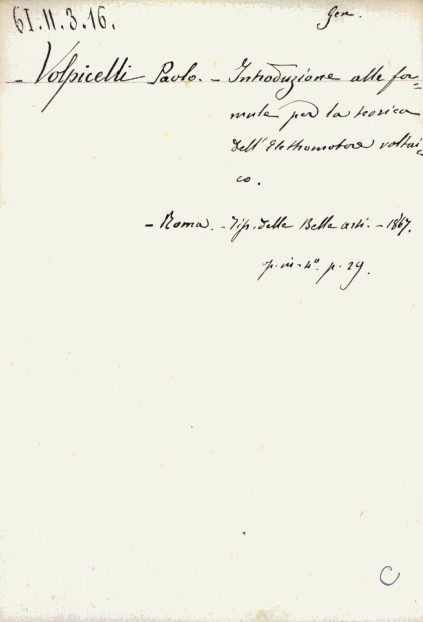 61.11.3.16.
Gen.
- Volpicelli Paolo. - Introduzione alle for=
mule per la teorica
dell'Elettromotore voltai=
co.
- Roma. - Tip. delle Belle arti. - 1867.
p. in-4°. p. 29.
C